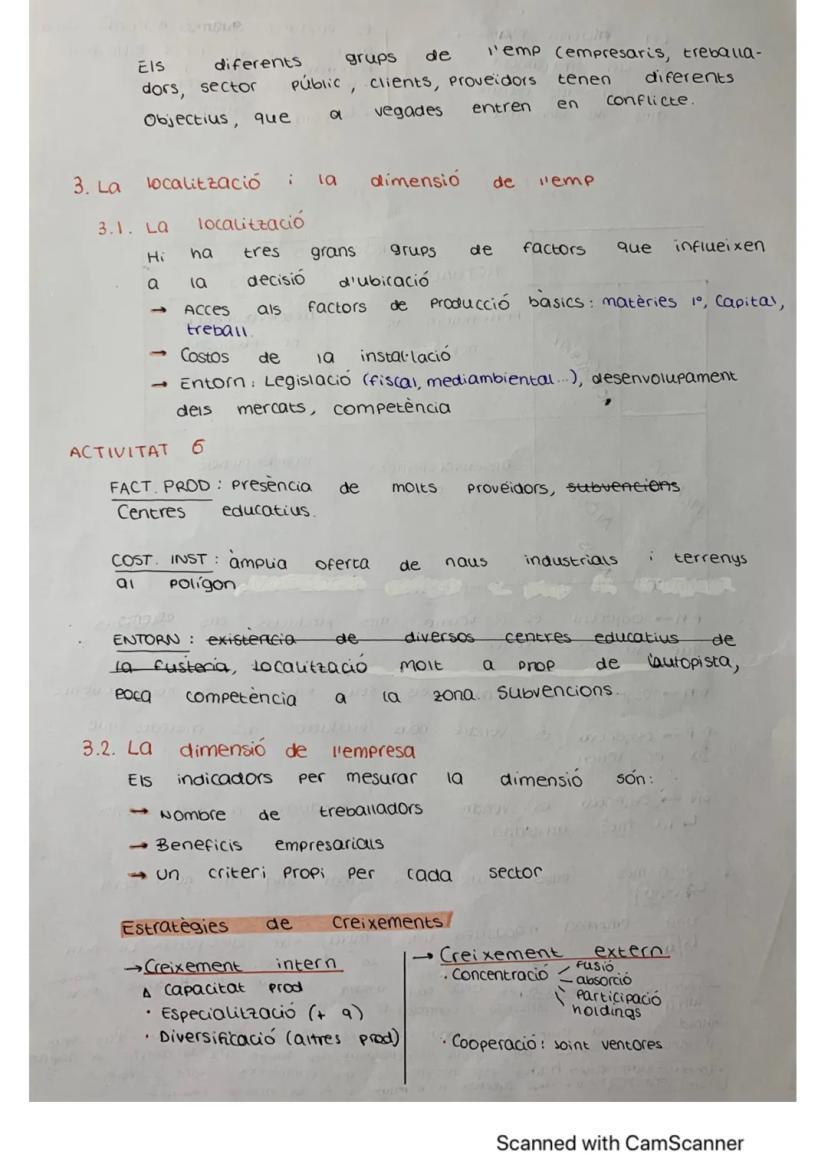 Els diferents grups de l'emp (empresaris, treballa-
dors, sector públic, clients, proveïdors tenen diferents
Objectius, que a vegades entren en conflicte.
3. La localització i la dimensió de l'emp
3.1. La localització
Hi ha tres grans grups de factors que influeixen
a la decisió d'ubicació
→ Acces als factors de producció bàsics: matèries 1º, capital,
treball.
→ Costos de la instal·lació
→ Entorn: Legislació (fiscal, mediambiental...), desenvolupament
dels mercats, competència
ACTIVITAT 6
FACT. PROD: Presència de molts proveïdors, subvencions
Centres educatius.
COST. INST: àmplia oferta de naus industrials i terrenys
al polígon
ENTORN: existència de diversos centres educatius de
la fusteria, localització molt a prop de l'autopista,
poca competència a la zona. Subvencions.
3.2. La dimensió de l'empresa
Els indicadors per mesurar la dimensió són:
→ Nombre de treballadors
→ Beneficis empresarials
→ Un criteri propi per cada sector
Estratègies de Creixements
→ Creixement intern
Δ capacitat prod
· Especialització (+ q)
· Diversificació (altres prod)
→ Creixement extern
· Concentració fusió
absorció
participació
holdings
· Cooperació: soint ventores
Scanned with CamScanner